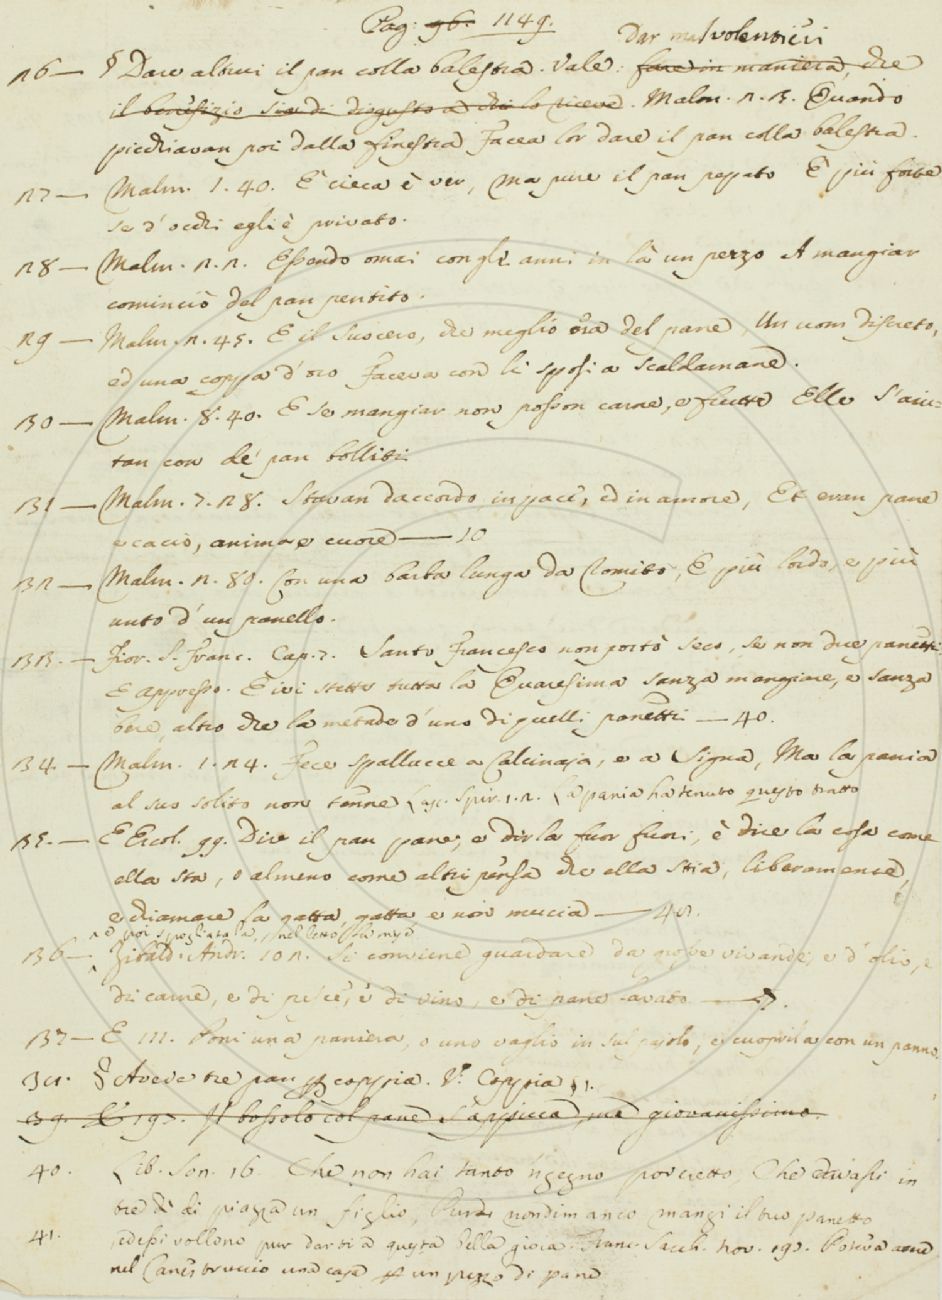 Pag: 96. 1149.
Dar malvolentieri
126 — § Dare altrui il pan colla balestra. Vale: fare in maniera, che
il benefizio sia di disgusto a chi lo riceve. Malm. 2. 3. Quando
picchiavan poi dalla finestra Facea lor dare il pan colla balestra.
127 — Malm. 1. 40. È cieca è ver, ma pure il pan pepato È più forte
se d'occhi egli è privato.
128 — Malm. 2. 2. Essendo omai con gli anni in là un pezzo A mangiar
cominciò del pan pentito.
129 — Malm. 2. 45. E il Suocero, che meglio era del pane, Un uom discreto,
ed una coppa d'oro Faceva con li sposi a Scaldamane.
130 — Malm. 8. 40. E se mangiar non posson carne, e frutte Elle s'aiu=
tan con de' pan bolliti
131 — Malm. 7. 28. Stavan daccordo in pace, ed in amore, Et eran pane
e cacio, anima e cuore — 10
132 — Malm. 2. 80. Con una barba lunga da Romito, E più lordo, e più
unto d'un panello.
133. — Fior. S. Franc. Cap. 7. Santo Francesco non portò seco, se non due panetti
E appresso. E ivi stette tutta la Quaresima sanza mangiare, e sanza
bere, altro che la metade d'uno di quelli panetti — 40.
134 — Malm. 1. 24. Fece spallucce a Calcinaja, e a Signa, Ma la pania
al suo solito non tenne Lasc. Spir. 1. 2. La pania ha tenuto questo tratto
135. — E Ercol. 99. Dire il pan pane, e dirla fuor fuori, è dire la cosa come
ella sta, o almeno come altri pensa che ella stia, liberamente,
e chiamare la gatta, gatta e non mucia —
136 — Zibald. Andr. 102. Si conviene guardare da grosse vivande, e d'olio, e
di carne, e di pesce, e di vino, e di pane lavato — 7.
137 — E 111. Poni una paniera, o uno vaglio in sul pajolo, e cuoprila con un panno.
§ Avere tre pan coppia. V. Coppia § 1.
39. E 197. Il bossolo col pane s'appicca, ma giovanissimo.
40. Lib. Son. 16. Che non hai tanto 'ngegno porcretto, Che in
tre dì di piazza un figlio, nondimanco mangi il tuo panetto
41. pur darti a questa bella gioia. Franc. Sacch. nov. 192. Poteva
nel Canestruccio una casa un pezzo di pane